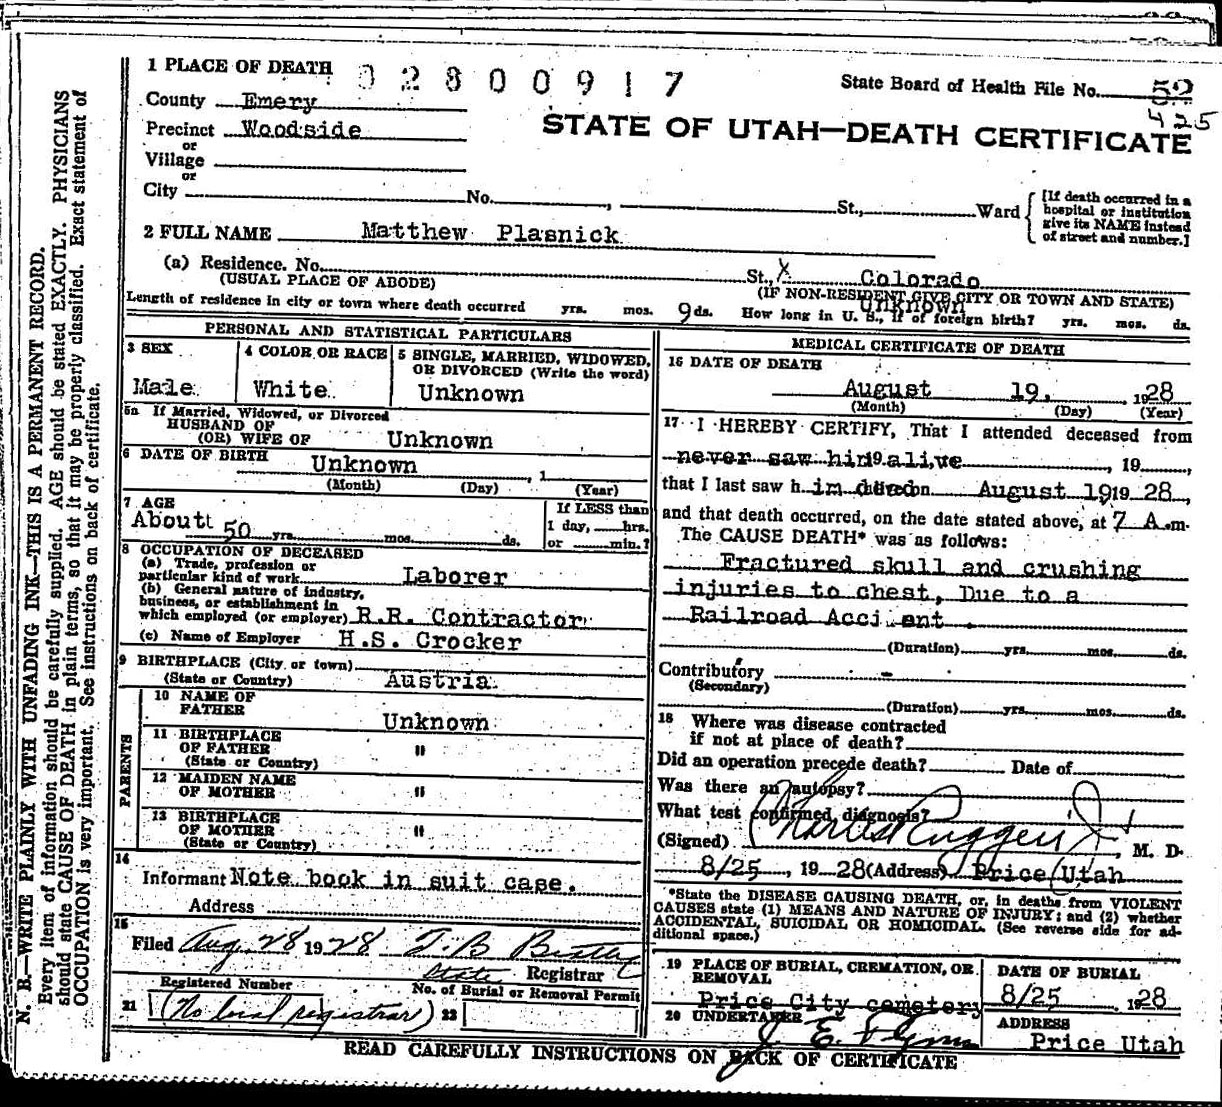 N. B.—WRITE PLAINLY WITH UNFADING INK—THIS IS A PERMANENT RECORD.
Every item of information should be carefully supplied. AGE should be stated EXACTLY. PHYSICIANS
should state CAUSE OF DEATH in plain terms, so that it may be properly classified. Exact statement of
OCCUPATION is very important. See instructions on back of certificate.
1 PLACE OF DEATH 02800917
State Board of Health File No. 52
425
County Emery
STATE OF UTAH—DEATH CERTIFICATE
Precinct Woodside
or
Village
or
City No. , St., Ward
[If death occurred in a
hospital or institution
give its NAME instead
of street and number.]
2 FULL NAME Matthew Plasnick
(a) Residence. No. St., X Colorado
(USUAL PLACE OF ABODE) (IF NON-RESIDENT GIVE CITY OR TOWN AND STATE)
Length of residence in city or town where death occurred yrs. mos. 9 ds. How long in U. S., if of foreign birth? Unknown yrs. mos. ds.
PERSONAL AND STATISTICAL PARTICULARS
3 SEX
Male
4 COLOR OR RACE
White
5 SINGLE, MARRIED, WIDOWED,
OR DIVORCED (Write the word)
Unknown
5a If Married, Widowed, or Divorced
HUSBAND OF
(OR) WIFE OF Unknown
6 DATE OF BIRTH Unknown , 1
(Month) (Day) (Year)
7 AGE
Aboutt 50 yrs. mos. ds.
If LESS than
1 day, hrs.
or min.?
8 OCCUPATION OF DECEASED
(a) Trade, profession or
particular kind of work Laborer
(b) General nature of industry,
business, or establishment in
which employed (or employer) R.R. Contractor
(c) Name of Employer H.S. Crocker
9 BIRTHPLACE (City or town)
(State or Country) Austria
PARENTS
10 NAME OF
FATHER Unknown
11 BIRTHPLACE
OF FATHER "
(State or Country)
12 MAIDEN NAME
OF MOTHER "
13 BIRTHPLACE
OF MOTHER "
(State or Country)
14
Informant Note book in suit case.
Address
15
Filed Aug 28 1928 J. B.
State Registrar
Registered Number
21 (No local registrar)
No. of Burial or Removal Permit
22
MEDICAL CERTIFICATE OF DEATH
16 DATE OF DEATH
August 19, , 1928
(Month) (Day) (Year)
17 I HEREBY CERTIFY, That I attended deceased from
never saw him 19 alive , 19 ,
that I last saw h im dead on August 19 19 28,
and that death occurred, on the date stated above, at 7 A.m.
The CAUSE DEATH* was as follows:
Fractured skull and crushing
injuries to chest, Due to a
Railroad Acci ent .
(Duration) yrs. mos. ds.
Contributory -
(Secondary)
(Duration) yrs. mos. ds.
18 Where was disease contracted
if not at place of death?
Did an operation precede death? Date of
Was there an autopsy?
What test confirmed diagnosis?
(Signed) Charles Ruggeri Jr , M. D.
8/25 , 1928 (Address) Price Utah
*State the DISEASE CAUSING DEATH, or, in deaths from VIOLENT
CAUSES state (1) MEANS AND NATURE OF INJURY; and (2) whether
ACCIDENTAL, SUICIDAL OR HOMICIDAL. (See reverse side for ad-
ditional space.)
19 PLACE OF BURIAL, CREMATION, OR
REMOVAL
Price City cemetery
DATE OF BURIAL
8/25 , 1928
20 UNDERTAKER
J. E. Flynn
ADDRESS
Price Utah
READ CAREFULLY INSTRUCTIONS ON BACK OF CERTIFICATE